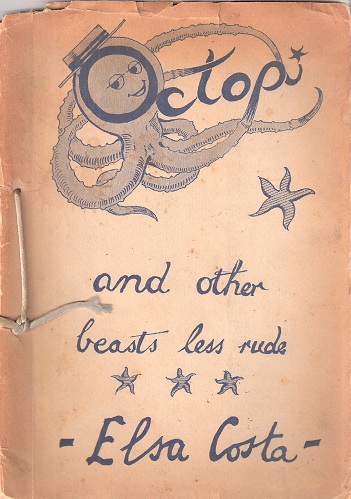 Octopi
and other
beasts less rude
- Elsa Costa -